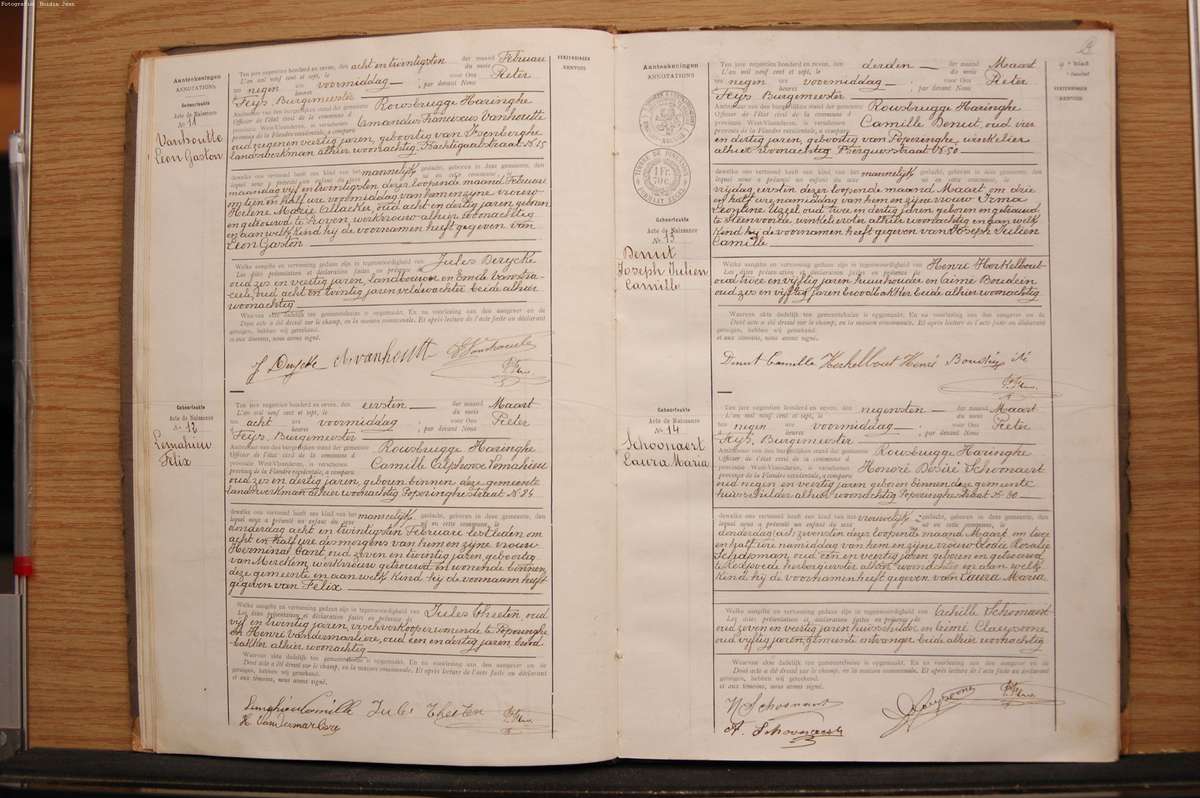 Fotografie: Boidin Jean
Aanteekeningen
ANNOTATIONS
Geboorteakte
Acte de Naissance
No. 11
Vanhoutte
Leon Gaston
Ten jare negentien honderd en zeven, den acht en twintigsten der maand Februari
L'an mil neuf cent et sept, le du mois
ten negen ure voormiddag voor Ons Pieter
heures ; par devant Nous
Feys Burgemeester
Ambtenaar van den burgerlijken stand der gemeente Rousbrugge Haringhe
Officier de l'état civil de la commune d
provincie West-Vlaanderen, is verschenen Amandus Franciscus Vanhoutte
province de la Flandre occidentale, a comparu
oud negen en veertig jaren, geboortig van Isenberghe
landwerkman alhier woonachtig Nr 15
dewelke ons vertoond heeft een kind van het mannelijk geslacht, geboren in deze gemeente, den
lequel nous a présenté un enfant du sexe né en cette commune, le
maandag vijf en twintigsten dezer loopende maand Februari
om tien en half ure voormiddag van hem en zijne vrouw
Helene Marie oud acht en dertig jaren, geboren
en getrouwd te Proven, werkvrouw alhier woonachtig
en aan welk kind hij de voornamen heeft gegeven van
Leon Gaston
Welke aangifte en vertooning gedaan zijn in tegenwoordigheid van Jules Derycke
Les dites présentation et déclaration faites en présence de
oud zes en veertig jaren, landbouwer en Emile
oud acht en twintig jaren veldwachter beide alhier
woonachtig
Waarvan akte dadelijk ten gemeentehuize is opgemaakt. En na voorlezing aan den aangever en de
Dont acte a été dressé sur le champ, en la maison communale. Et après lecture de l'acte faite au déclarant
getuigen, hebben wij geteekend.
et aux témoins, nous avons signé.
J Deryckx A. vanhoutt
Geboorteakte
Acte de Naissance
No. 12
Lemahieu
Felix
Ten jare negentien honderd en zeven, den eersten der maand Maart
L'an mil neuf cent et sept, le du mois
ten acht ure voormiddag voor Ons Pieter
heures ; par devant Nous
Feys, Burgemeester
Ambtenaar van den burgerlijken stand der gemeente Rousbrugge Haringhe
Officier de l'état civil de la commune d
provincie West-Vlaanderen, is verschenen Camille Alphonse Lemahieu
province de la Flandre occidentale, a comparu
oud zes en dertig jaren, geboren binnen deze gemeente
landwerkman alhier woonachtig Poperinghestraat Nr 24
dewelke ons vertoond heeft een kind van het mannelijk geslacht, geboren in deze gemeente, den
lequel nous a présenté un enfant du sexe né en cette commune, le
donderdag acht en twintigsten Februari lestleden om
acht en half ure des morgens van hem en zijne vrouw
Herminal Cant oud zeven en twintig jaren, geboortig
van Merckem, werkvrouw getrouwd en wonende binnen
deze gemeente en aan welk kind hij de voornaam heeft
gegeven van Felix
Welke aangifte en vertooning gedaan zijn in tegenwoordigheid van Jules Theeten oud
Les dites présentation et déclaration faites en présence de
vijf en twintig jaren, vischverkooper wonende te Poperinghe
en Henri Vandermarliere, oud een en dertig jaren, brood
bakker alhier woonachtig
Waarvan akte dadelijk ten gemeentehuize is opgemaakt. En na voorlezing aan den aangever en de
Dont acte a été dressé sur le champ, en la maison communale. Et après lecture de l'acte faite au déclarant
getuigen, hebben wij geteekend.
et aux témoins, nous avons signé.
Jules Theeten
VERZENDINGEN
RENVOIS
Aanteekeningen
ANNOTATIONS
TIMBRE DE DIMENSION
1 Fr.
Geboorteakte
Acte de Naissance
No. 13
Benut
Joseph Julien
Camille
Ten jare negentien honderd en zeven, den derden der maand Maart
L'an mil neuf cent et sept, le du mois
ten negen ure voormiddag voor Ons Pieter
heures ; par devant Nous
Feys Burgemeester
Ambtenaar van den burgerlijken stand der gemeente Rousbrugge Haringhe
Officier de l'état civil de la commune d
provincie West-Vlaanderen, is verschenen Camille Benut, oud vier
province de la Flandre occidentale, a comparu
en dertig jaren, geboortig van Poperinghe, winkelier
alhier woonachtig Berguesstraat Nr 50
dewelke ons vertoond heeft een kind van het mannelijk geslacht, geboren in deze gemeente, den
lequel nous a présenté un enfant du sexe né en cette commune, le
vrijdag eersten dezer loopende maand Maart om drie
en half ure namiddag van hem en zijne vrouw Irma
Leontine oud twee en dertig jaren, geboren en getrouwd
te Steenvoorde winkelierster alhier woonachtig en aan welk
kind hij de voornamen heeft gegeven van Joseph Julien
Camille
Welke aangifte en vertooning gedaan zijn in tegenwoordigheid van Henri Herkelbout
Les dites présentation et déclaration faites en présence de
oud twee en vijftig jaren huurhouder en Aimé Boudein
oud zes en vijftig jaren broodbakker beide alhier woonachtig
Waarvan akte dadelijk ten gemeentehuize is opgemaakt. En na voorlezing aan den aangever en de
Dont acte a été dressé sur le champ, en la maison communale. Et après lecture de l'acte faite au déclarant
getuigen, hebben wij geteekend.
et aux témoins, nous avons signé.
Benut Camille Herkelbout Henri
Geboorteakte
Acte de Naissance
No. 14
Schoonaert
Laura Maria
Ten jare negentien honderd en zeven, den negensten der maand Maart
L'an mil neuf cent et sept, le du mois
ten negen ure voormiddag voor Ons Pieter
heures ; par devant Nous
Feys, Burgemeester
Ambtenaar van den burgerlijken stand der gemeente Rousbrugge Haringhe
Officier de l'état civil de la commune d
provincie West-Vlaanderen, is verschenen Honoré Desiré Schoonaert
province de la Flandre occidentale, a comparu
oud negen en veertig jaren, geboren binnen deze gemeente
huisschilder alhier woonachtig Poperinghestraat Nr 30
dewelke ons vertoond heeft een kind van het vrouwelijk geslacht, geboren in deze gemeente, den
lequel nous a présenté un enfant du sexe né en cette commune, le
donderdag zevensten dezer loopende maand Maart om twee
en half ure namiddag van hem en zijne vrouw Elodie Rosalie
Schapman oud een en veertig jaren geboren en getrouwd
te herbergierster alhier woonachtig en aan welk
kind hij de voornamen heeft gegeven van Laura Maria
Welke aangifte en vertooning gedaan zijn in tegenwoordigheid van Achille Schoonaert
Les dites présentation et déclaration faites en présence de
oud zeven en veertig jaren huisschilder en Aimé Claeysoone
oud vijftig jaren, gemeente ontvanger beide alhier woonachtig
Waarvan akte dadelijk ten gemeentehuize is opgemaakt. En na voorlezing aan den aangever en de
Dont acte a été dressé sur le champ, en la maison communale. Et après lecture de l'acte faite au déclarant
getuigen, hebben wij geteekend.
et aux témoins, nous avons signé.
H Schoonaert
A. Schoonaert
VERZENDINGEN
RENVOIS